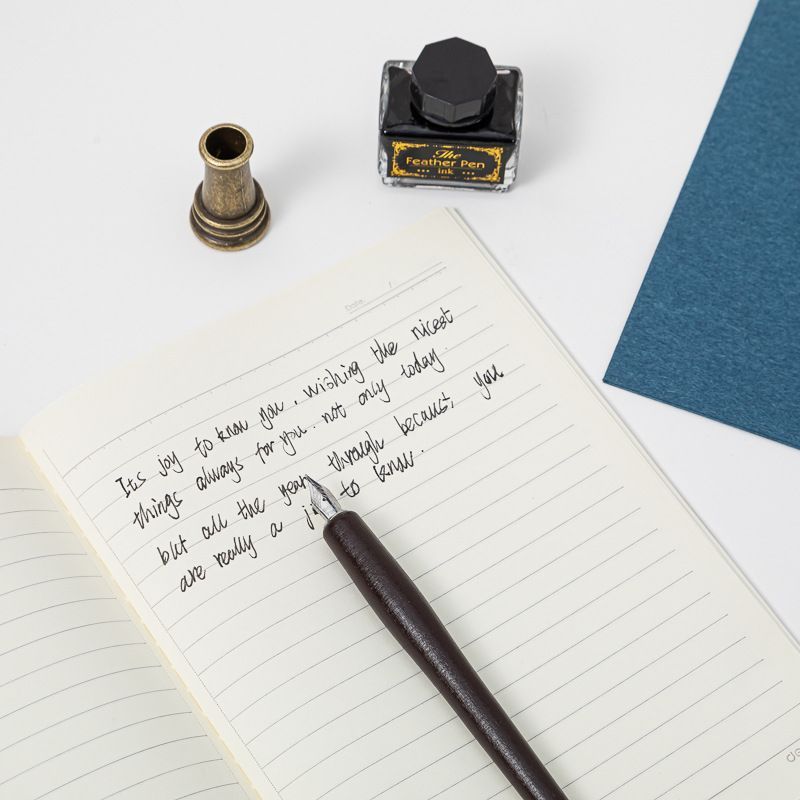 The
Feather Pen
ink
Date: /
Its joy to know you. wishing the nicest
things always for you. not only today.
but all the year through because, you
are really a to know.